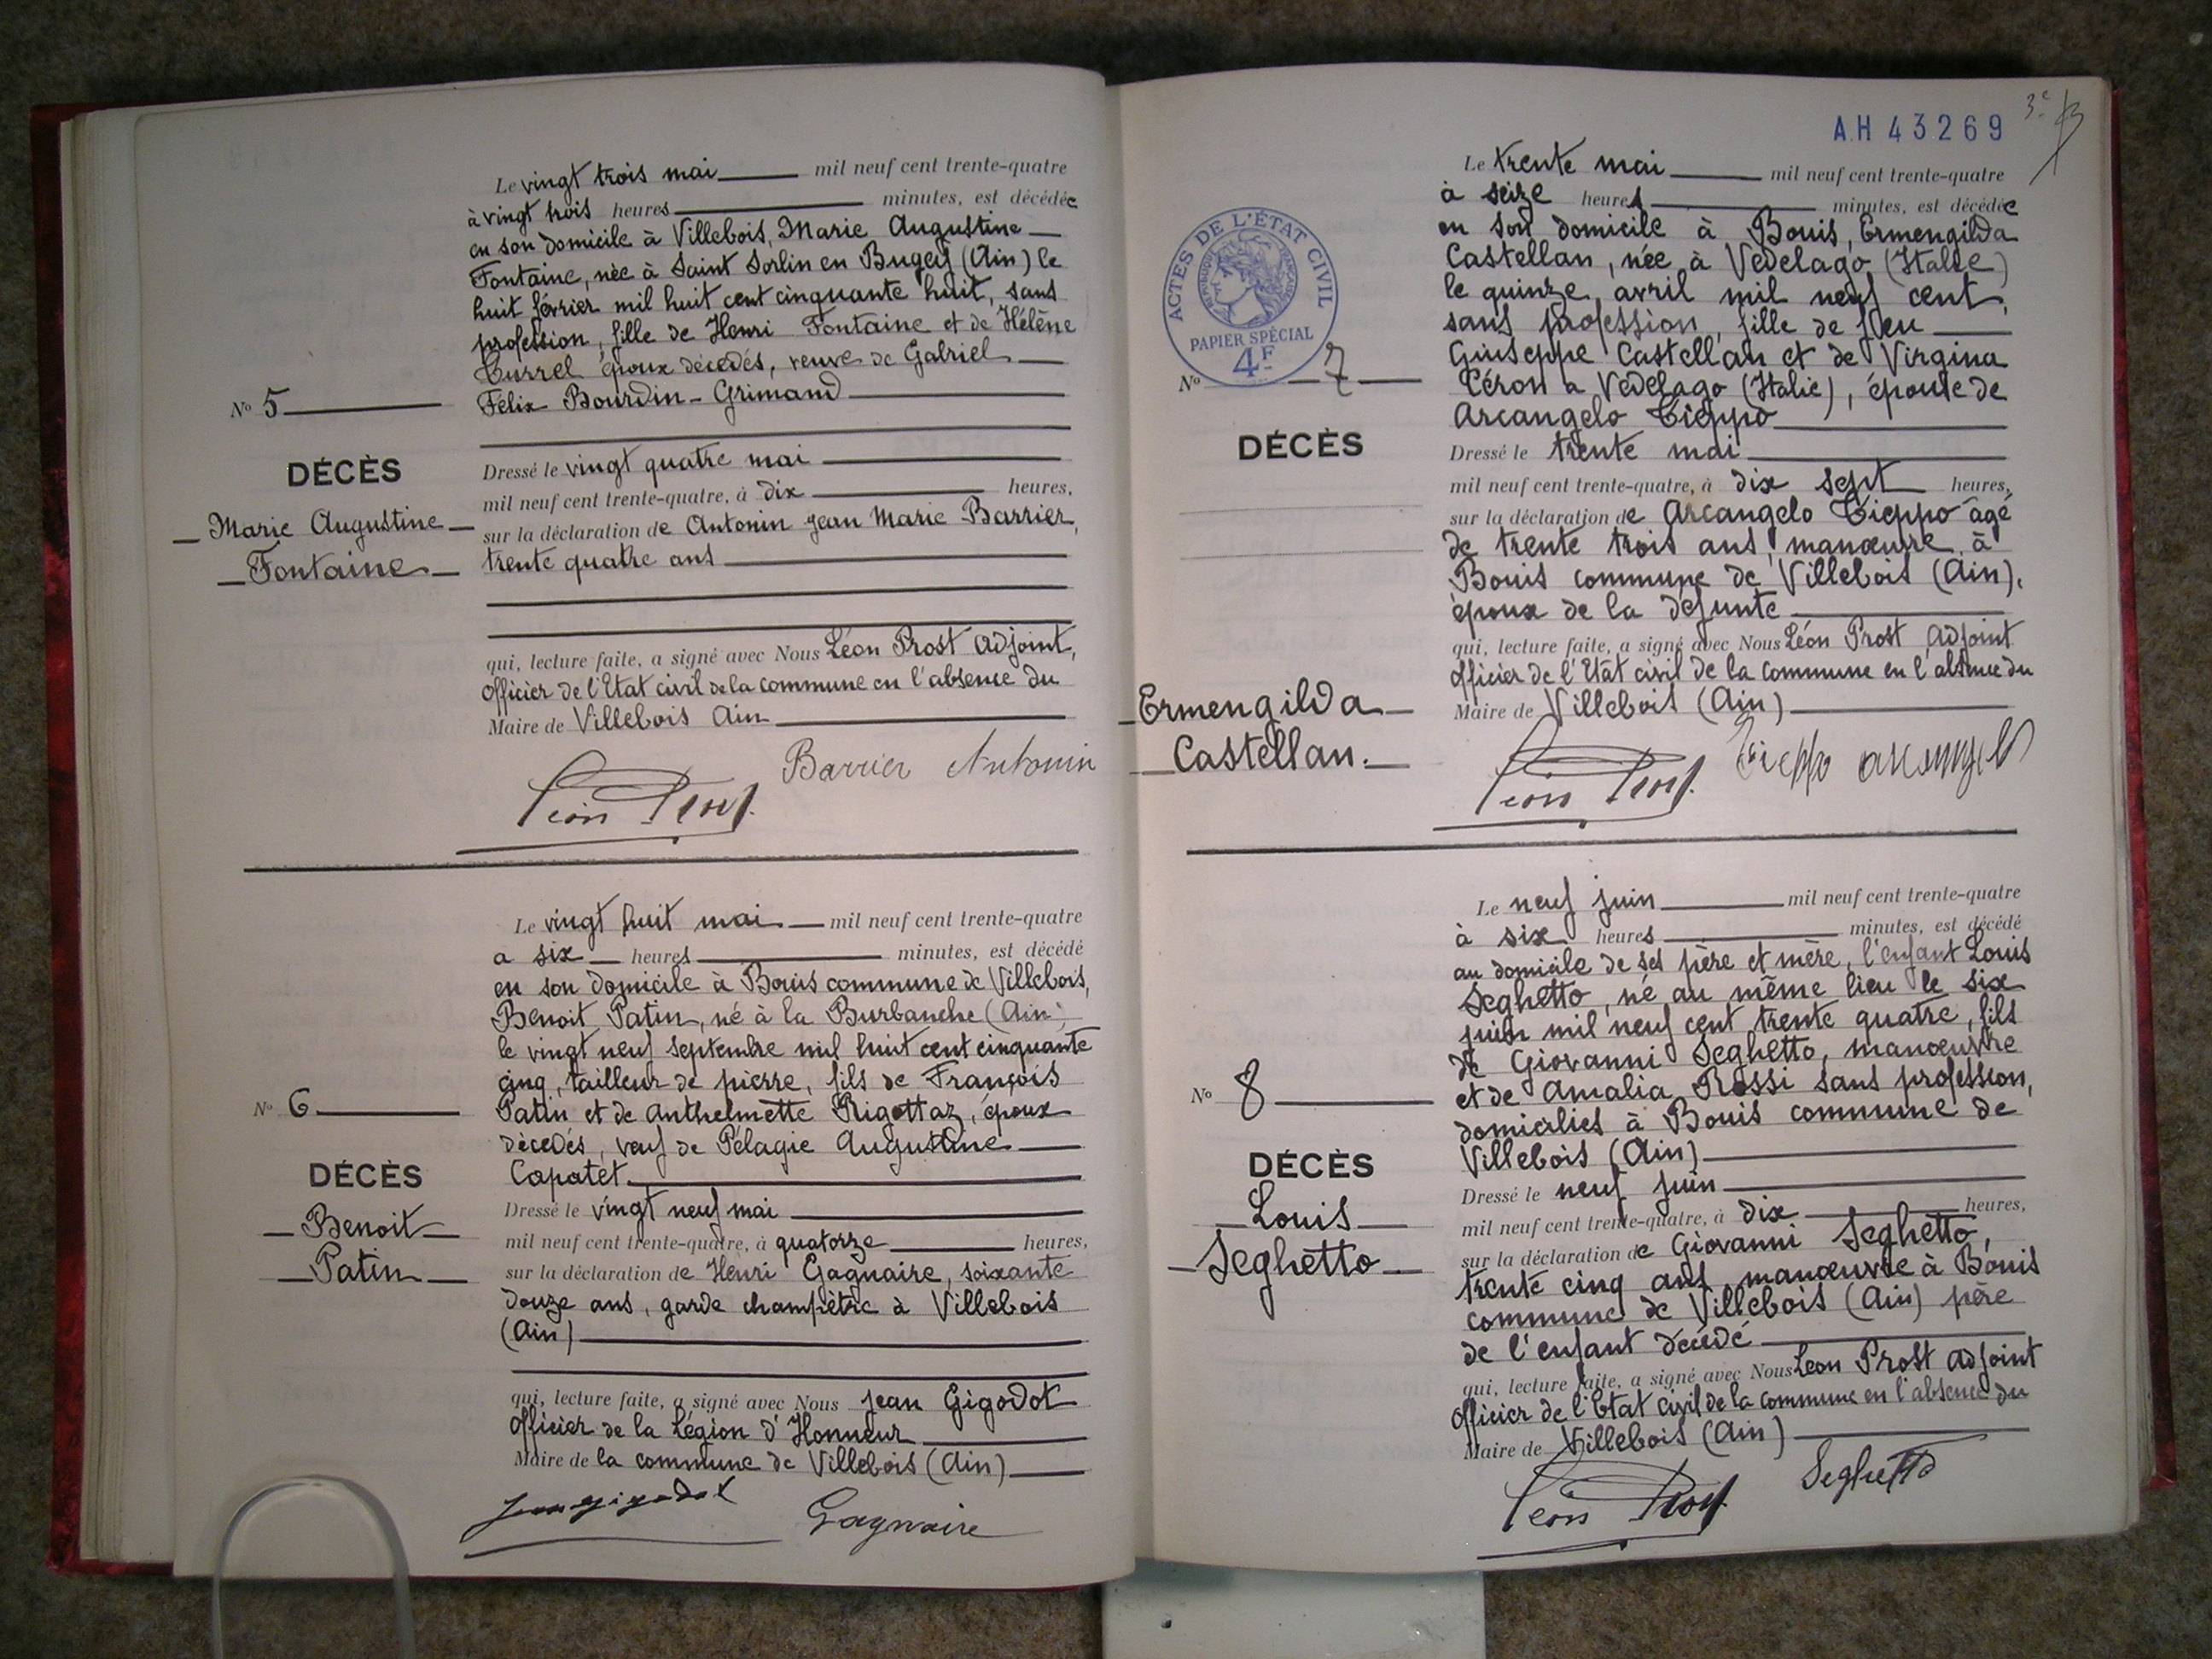 Le vingt trois mai mil neuf cent trente-quatre
à vingt trois heures minutes, est décédée
en son domicile à Villebois, Marie Augustine
Fontaine, née à Saint Sorlin en Bugey (Ain) le
huit février mil huit cent cinquante huit, sans
profession, fille de Henri Fontaine et de Hélène
Currel époux décédés, veuve de Gabriel
Félix Bourdin-Grimaud
N° 5
DÉCÈS
Marie Augustine
Fontaine
Dressé le vingt quatre mai
mil neuf cent trente-quatre, à dix heures,
sur la déclaration de Antonin Jean Marie Barrier,
trente quatre ans
qui, lecture faite, a signé avec Nous Léon Prost Adjoint,
officier de l'Etat civil de la commune en l'absence du
Maire de Villebois Ain
Barrier Antonin
Léon Prost
Le vingt huit mai mil neuf cent trente-quatre
a six heures minutes, est décédé
en son domicile à Bouis commune de Villebois,
Benoit Patin, né à la Burbanche (Ain)
le vingt neuf septembre mil huit cent cinquante
cinq, tailleur de pierre, fils de François
Patin et de Anthelmette Rigottaz, époux
décédés, veuf de Pélagie Augustine
Capatet
N° 6
DÉCÈS
Benoit
Patin
Dressé le vingt neuf mai
mil neuf cent trente-quatre, à quatorze heures,
sur la déclaration de Henri Gagnaire, soixante
douze ans, garde champètre à Villebois
(Ain)
qui, lecture faite, a signé avec Nous Jean Gigodot
officier de la Légion d'Honneur
Maire de la commune de Villebois (Ain)
Jean Gigodot
Gagnaire
A.H 43269
3e
ACTES DE L'ÉTAT CIVIL
RÉPUBLIQUE FRANÇAISE
PAPIER SPÉCIAL
4F
Le trente mai mil neuf cent trente-quatre
à seize heures minutes, est décédée
en son domicile à Bouis, Ermengilda
Castellan, née à Vedelago (Italie)
le quinze avril mil neuf cent,
sans profession, fille de feu
Giuseppe Castellan et de Virgina
Céron a Vedelago (Italie), épouse de
Arcangelo Cieppo
N° 7
DÉCÈS
Ermengilda
Castellan.
Dressé le trente mai
mil neuf cent trente-quatre, à dix sept heures,
sur la déclaration de Arcangelo Cieppo agé
de trente trois ans, manœuvre à
Bouis commune de Villebois (Ain),
époux de la défunte
qui, lecture faite, a signé avec Nous Léon Prost Adjoint
officier de l'Etat civil de la commune en l'absence du
Maire de Villebois (Ain)
Léon Prost
Le neuf juin mil neuf cent trente-quatre
à six heures minutes, est décédé
au domicile de ses père et mère, l'enfant Louis
Seghetto, né au même lieu le six
juin mil neuf cent trente quatre, fils
de Giovanni Seghetto, manœuvre
et de Amalia Rossi sans profession,
domiciliés à Bouis commune de
Villebois (Ain)
N° 8
DÉCÈS
Louis
Seghetto
Dressé le neuf juin
mil neuf cent trente-quatre, à dix heures,
sur la déclaration de Giovanni Seghetto,
trente cinq ans, manœuvre à Bouis
commune de Villebois (Ain) père
de l'enfant décédé
qui, lecture faite, a signé avec Nous Léon Prost Adjoint
officier de l'Etat civil de la commune en l'absence du
Maire de Villebois (Ain)
Léon Prost
Seghetto